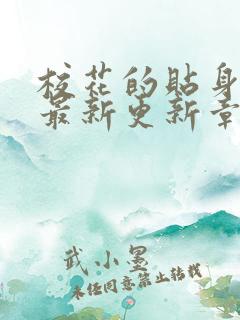 校花的贴身
最新更新章
武小墨
未经同意禁止转载